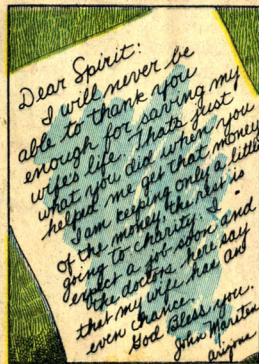 Dear Spirit:
I will never be
able to thank you
enough for saving my
wifes life. Thats just
what you did when you
helped me get that money
I am keeping only a little
of the money, the rest is
going to charity. I
expect a job soon and
the doctors here say
that my wife has an
even chance.
God Bless you.
John Marsten